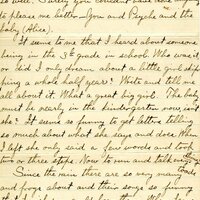 to please me better - You and Psyche and the
baby (Alice).
It seems to me that I heard about someone
being in the 3rd grade in school. Who was it
or did I only dream about a little girl
a whole half year? Write and tell me
all about it. What a great big girl. The baby
must be nearly in the kindergarten now, isn't
she? It seems so funny to get letters telling
so much about what she says and does. When
I left she only said a few words and took
two or three steps. Now to run and talk
Since the rain there are so very many
and frogs about and their songs so funny